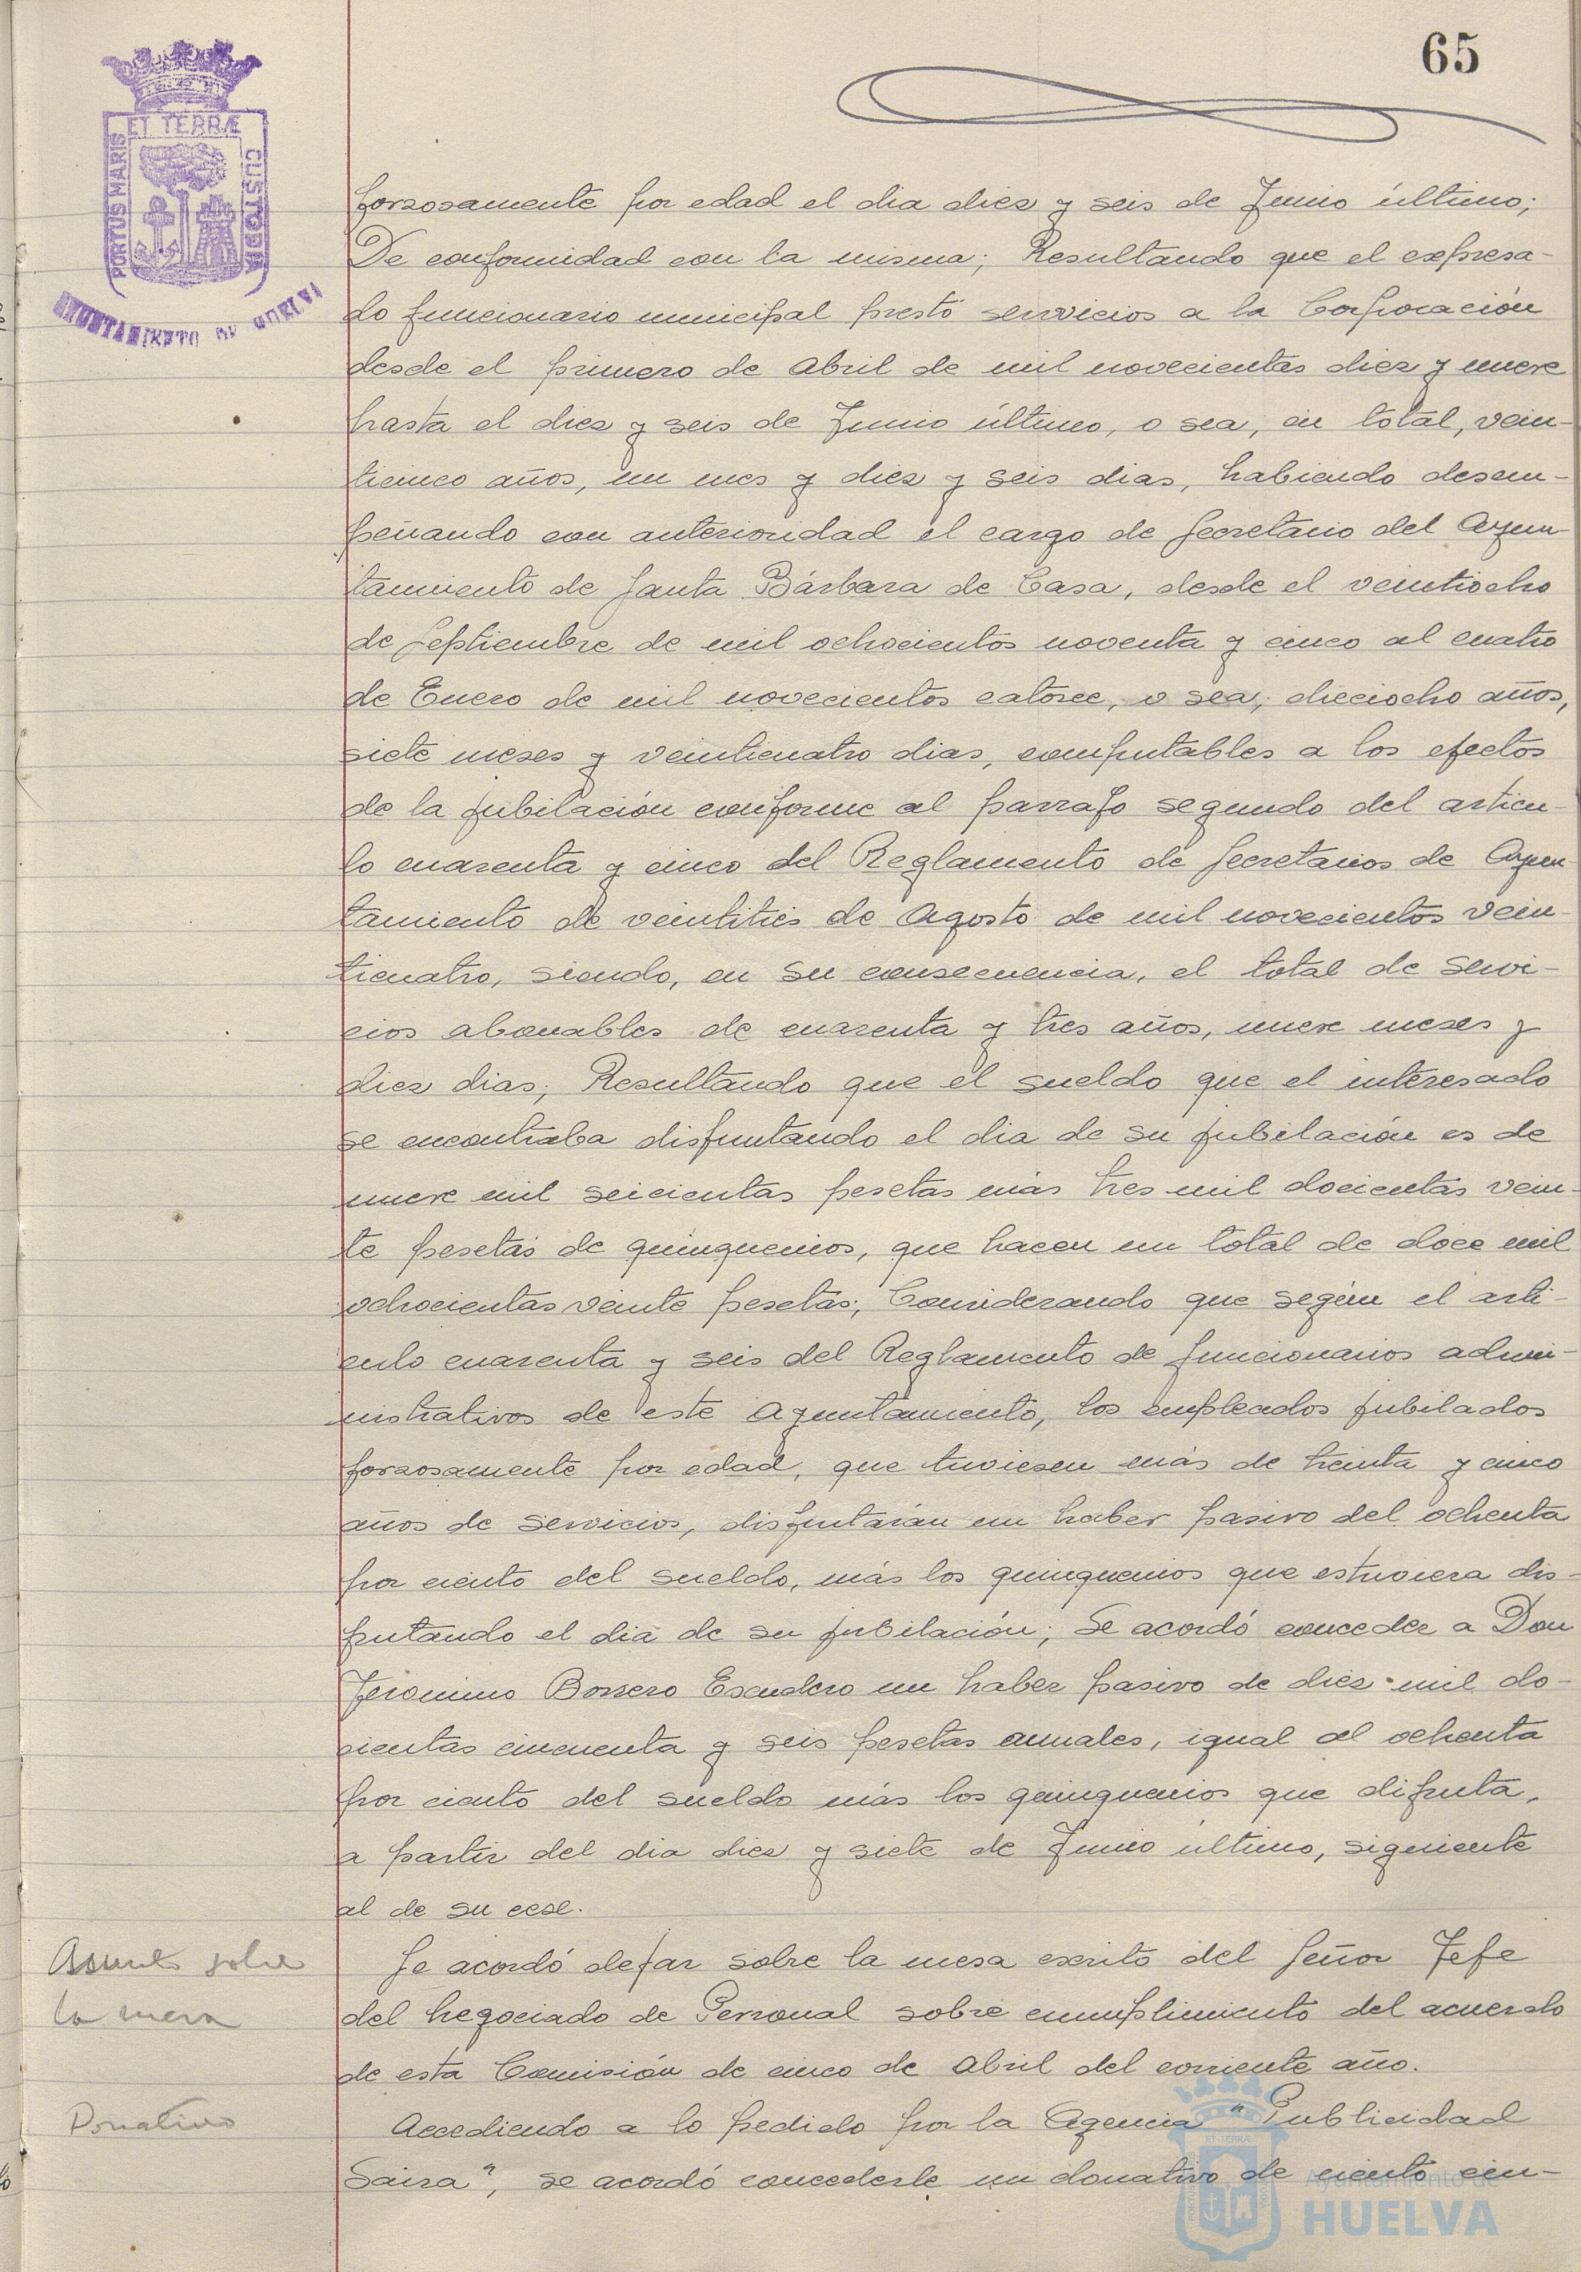 65
ET TERRÆ
PORTUS MARIS
CUSTODIA
AYUNTAMIENTO DE HUELVA
forzosamente por edad el dia diez y seis de Junio último;
De conformidad con la misma; Resultando que el expresa-
do funcionario municipal prestó servicios a la Corporación
desde el primero de Abril de mil novecientos diez y nueve
hasta el diez y seis de Junio último, o sea, en total, vein-
ticinco años, un mes y diez y seis dias, habiendo desem-
peñando con anterioridad el cargo de Secretario del Ayun
tamiento de Santa Bárbara de Casa, desde el veintiocho
de Septiembre de mil ochocientos noventa y cinco al cuatro
de Enero de mil novecientos catorce, o sea, dieciocho años,
siete meses y veinticuatro dias, computables a los efectos
de la jubilación conforme al parrafo segundo del articu-
lo cuarenta y cinco del Reglamento de Secretarios de Ayun
tamiento de veintitrés de Agosto de mil novecientos vein-
ticuatro, siendo, en su consecuencia, el total de servi-
cios abonables de cuarenta y tres años, nueve meses y
diez dias; Resultando que el sueldo que el interesado
se encontraba disfrutando el dia de su jubilación es de
nueve mil seicientas pesetas más tres mil docientas vein-
te pesetas de quinquenios, que hacen un total de doce mil
ochocientas veinte pesetas; Considerando que según el arti-
culo cuarenta y seis del Reglamento de funcionarios admi-
nistrativos de este Ayuntamiento, los empleados jubilados
forzosamente por edad, que tuviesen más de treinta y cinco
años de servicios, disfrutarán un haber pasivo del ochenta
por ciento del sueldo, más los quinquenios que estuviera dis-
frutando el dia de su jubilación; Se acordó conceder a Don
Jeronimo Borrero Escudero un haber pasivo de diez mil do-
cientas cincuenta y seis pesetas anuales, igual al ochenta
por ciento del sueldo más los quinquenios que difruta,
a partir del dia diez y siete de Junio último, siguiente
al de su cese.
Asunto sobre
la mesa
Se acordó dejar sobre la mesa escrito del Señor Jefe
del Negociado de Personal sobre cumplimiento del acuerdo
de esta Comisión de cinco de Abril del corriente año.
Donativo
Accediendo a lo pedido por la Agencia "Publicidad
Saira", se acordó concederle un donativo de ciento cin-
Ayuntamiento de
HUELVA